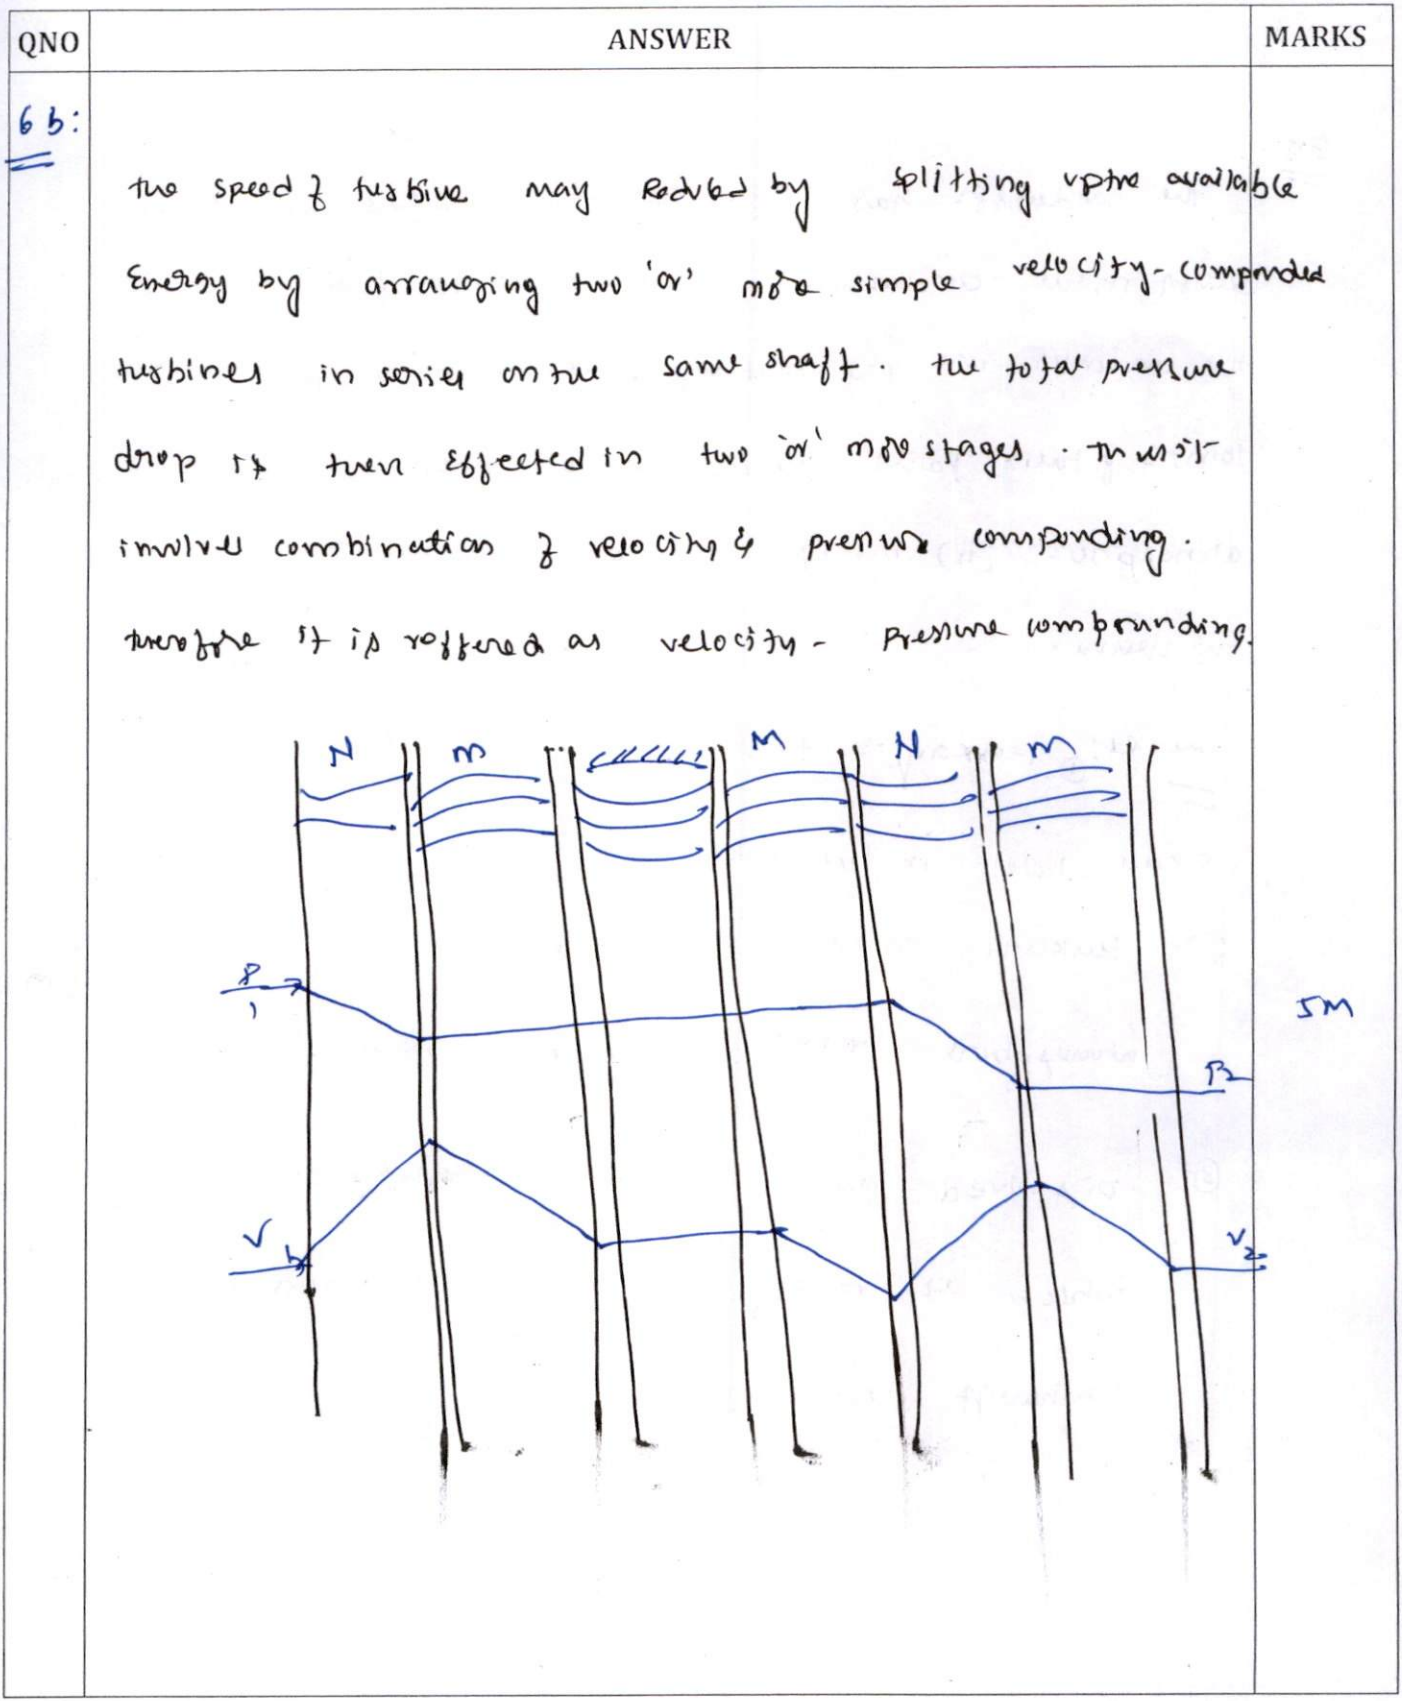 QNO ANSWER MARKS
6 b:
the speed of turbine may Reduced by splitting up the available
Energy by arranging two 'or' more simple velocity-compounded
turbines in series on the same shaft. the total pressure
drop is then Effected in two 'or' more stages.
involves combination of velocity & pressure compounding.
therefore it is reffered as velocity - pressure compounding.
N m M N m
P1
5M
P2
V
V2